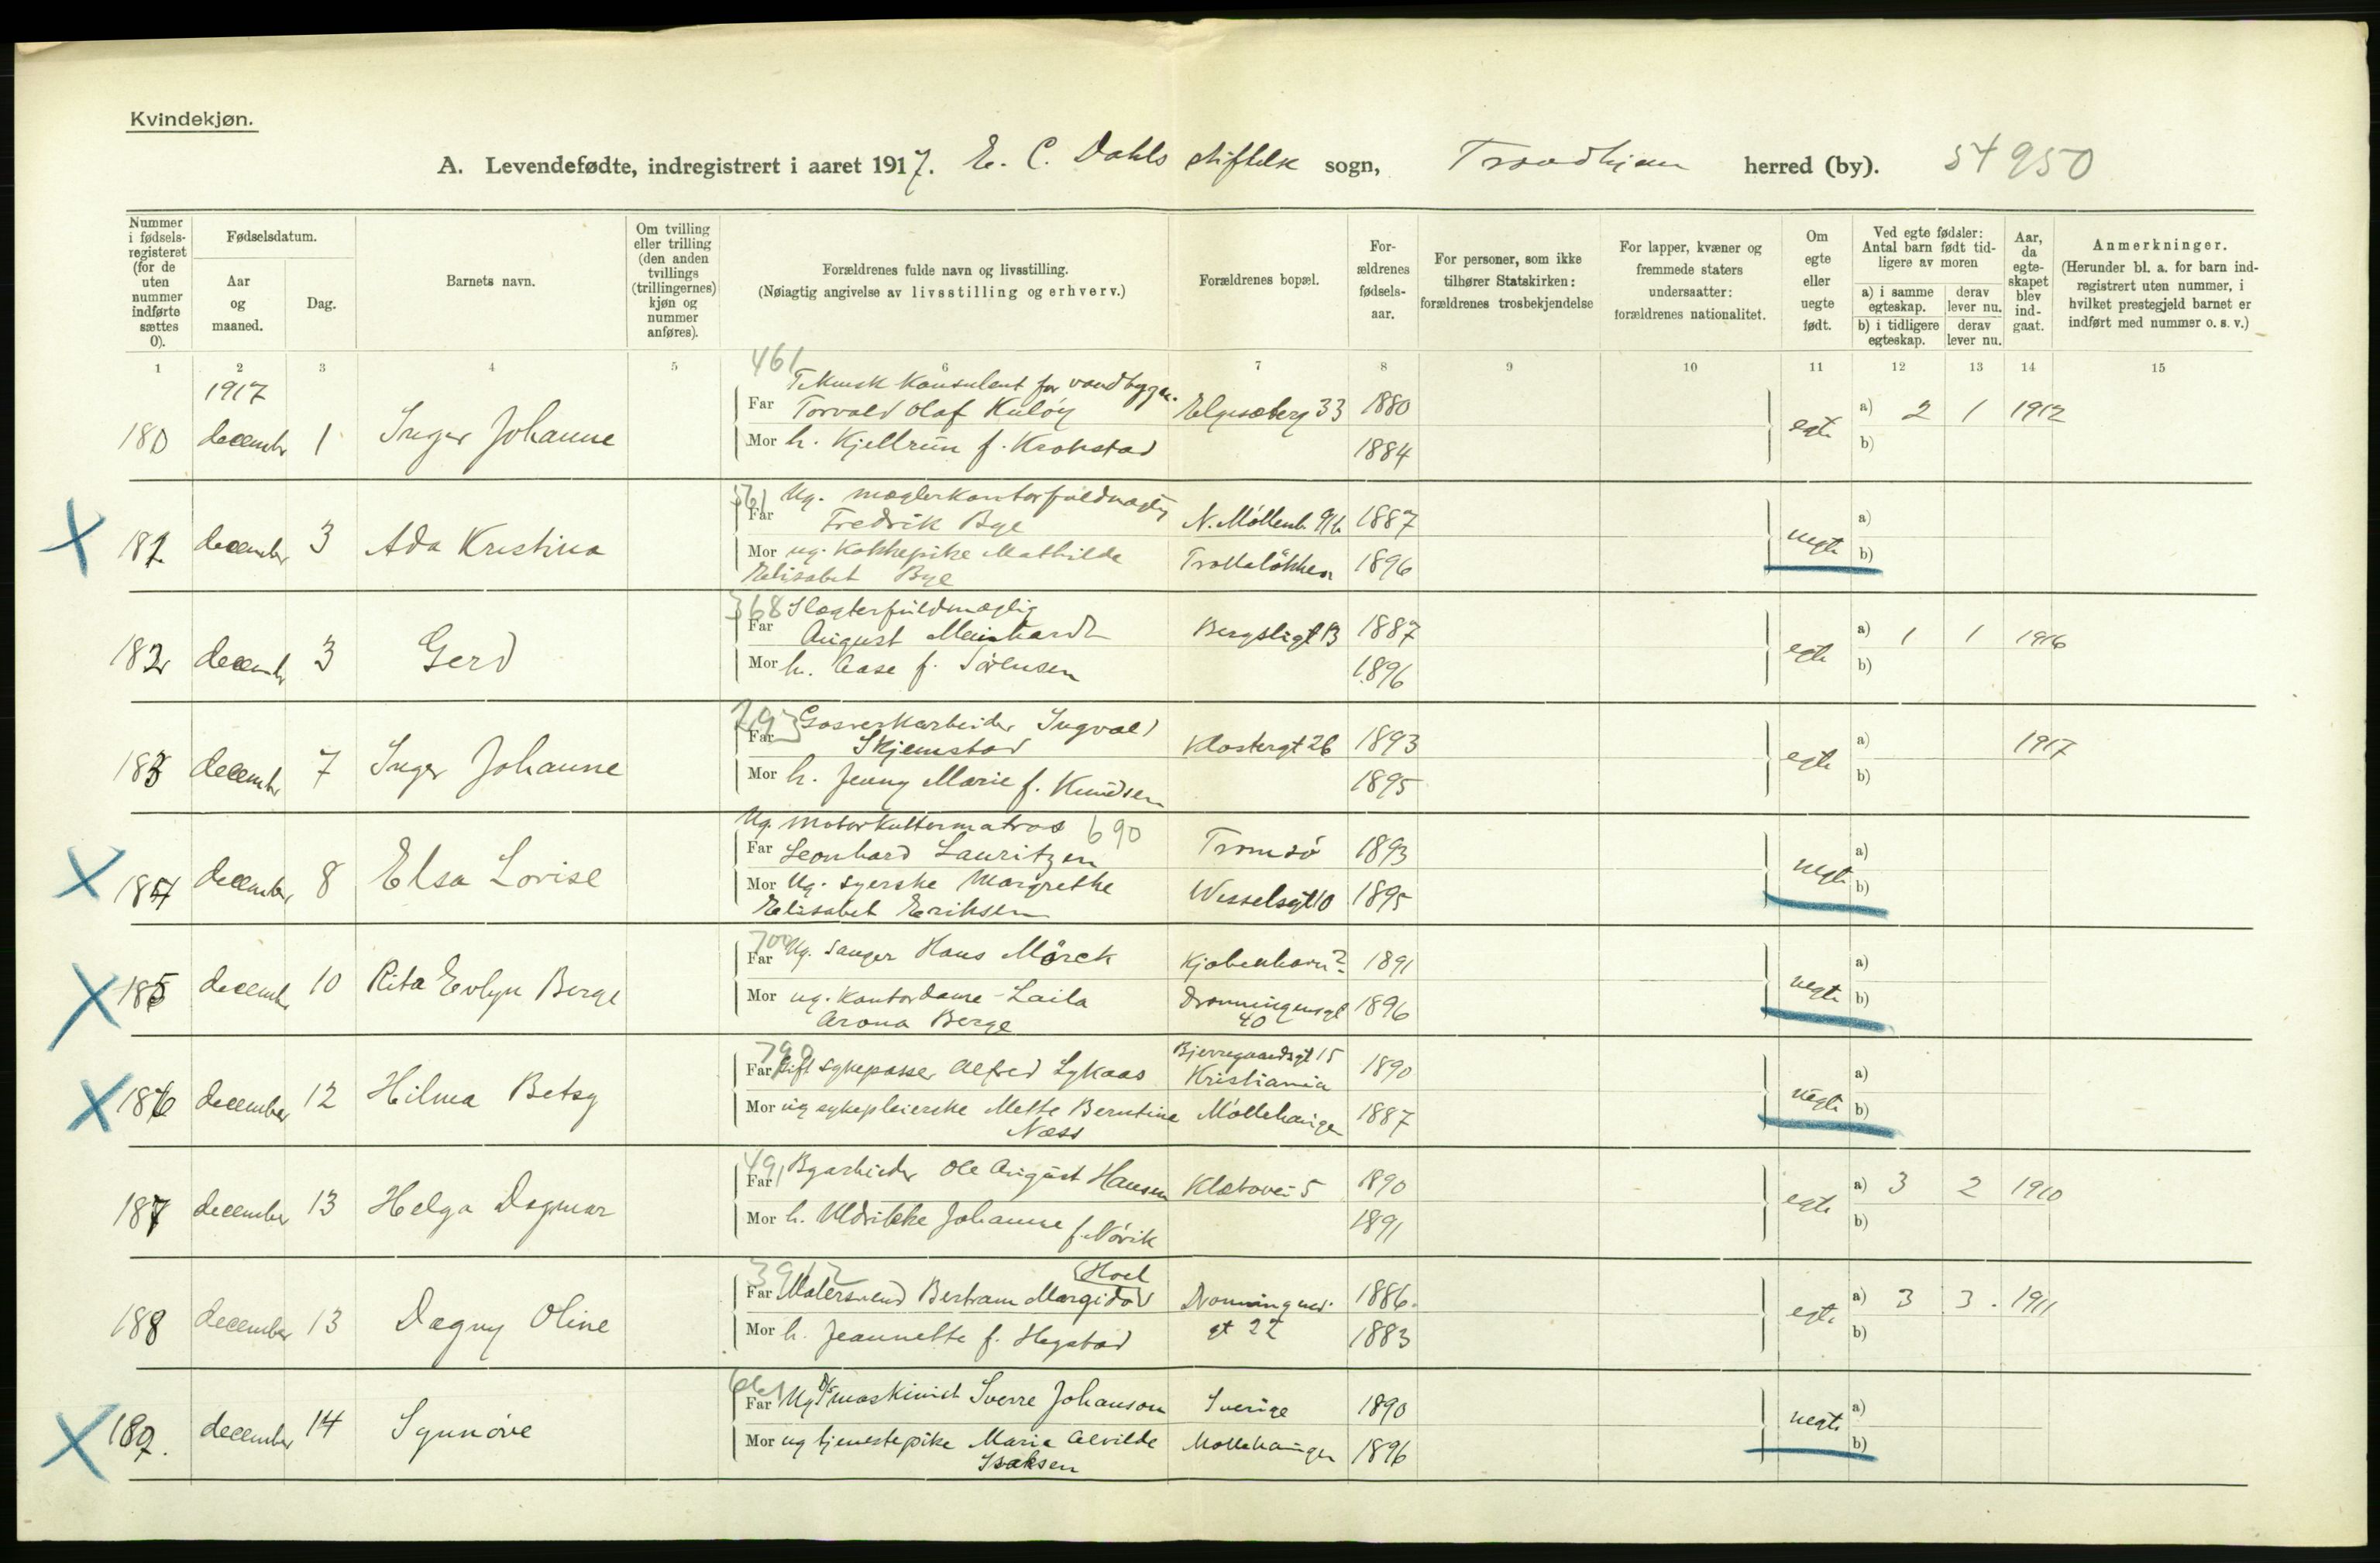 Kvindekjøn.
A. Levendefødte, indregistrert i aaret 1917. E. C. Dahls stiftelse sogn, Trondhjem herred (by). 54950
Nummer i fødsels-registeret (for de uten nummer indførte sættes 0).
Fødselsdatum.
Aar og maaned.
Dag.
Barnets navn.
Om tvilling eller trilling (den anden tvillings (trillingernes) kjøn og nummer anføres).
Forældrenes fulde navn og livsstilling.
(Nøiagtig angivelse av livsstilling og erhverv.)
Forældrenes bopæl.
For-ældrenes fødsels-aar.
For personer, som ikke tilhører Statskirken: forældrenes trosbekjendelse
For lapper, kvæner og fremmede staters undersaatter: forældrenes nationalitet.
Om egte eller uegte født.
Ved egte fødsler: Antal barn født tid-ligere av moren
a) i samme egteskap.
derav lever nu.
b) i tidligere egteskap.
derav lever nu.
Aar, da egte-skapet blev ind-gaat.
Anmerkninger.
(Herunder bl. a. for barn ind-registrert uten nummer, i hvilket prestegjeld barnet er indført med nummer o. s. v.)
1 2 3 4 5 6 7 8 9 10 11 12 13 14 15
461
1917 Teknisk Konsulent for vandbygn.
180 decembr 1 Inger Johanne Far Torvald Olaf Kuløy Elgesæterg 33 1880 egte a) 2 1 1912
Mor h. Kjellrun f. Krokstad 1884 b)
Ug. mæglerkontorfuldmægtig
181 december 3 Ada Kristina Far Fredrik Bye N. Møllenb. 1887 uegte a)
Mor ug. Kokkepike Mathilde Trollaløkken 1896 b)
Elisabet Bye
368 Slagterfuldmægtig
182 decembr 3 Gerd Far August Meinhardt Bergsligt 13 1887 egte a) 1 1 1916
Mor h. Aase f. Sørensen 1896 b)
Gasverkarbeider Ingvald
183 decembr 7 Inger Johanne Far Skjemstad Klostergt 26 1893 egte a) 1917
Mor h. Jenny Marie f. Knudsen 1895 b)
Ug. Motorkuttermatros 690
184 december 8 Elsa Lovise Far Leonhard Lauritzen Tromsø 1893 uegte a)
Mor Ug. syerske Margrethe Wesselsgt 10 1895 b)
Elisabet Eriksen
700
185 decembr 10 Rita Evlyn Berge Far Ug. sanger Hans Mørck Kjøbenhavn? 1891 uegte a)
Mor ug. Kontordame Laila Dronningensgt 1896 b)
Arona Berge 40
790 Bjerregaardsgt 15
186 december 12 Hilma Betsy Far Gift sykepasser Alfred Lykaas Kristiania 1890 uegte a)
Mor ug sykepleierske Mette Berntine Møllehaugen 1887 b)
Næss
491
187 december 13 Helga Dagmar Far Byarbeider Ole August Hansen Klæbovei 5 1890 egte a) 3 2 1910
Mor h. Uldrikke Johanne f. Nórvik 1891 b)
3912 (Hoel
188 december 13 Dagny Oline Far Malersvend Bertram Margido Dronningens 1886. egte a) 3 3. 1911
Mor h. Jeannette f. Hegstad gt 22 1883 b)
661
189. december 14 Synnøve Far Ug D/S maskinist Sverre Johanson Sverige 1890 uegte a)
Mor ug tjenestepike Maria Alvilde Mollehaugen 1896 b)
Isaksen